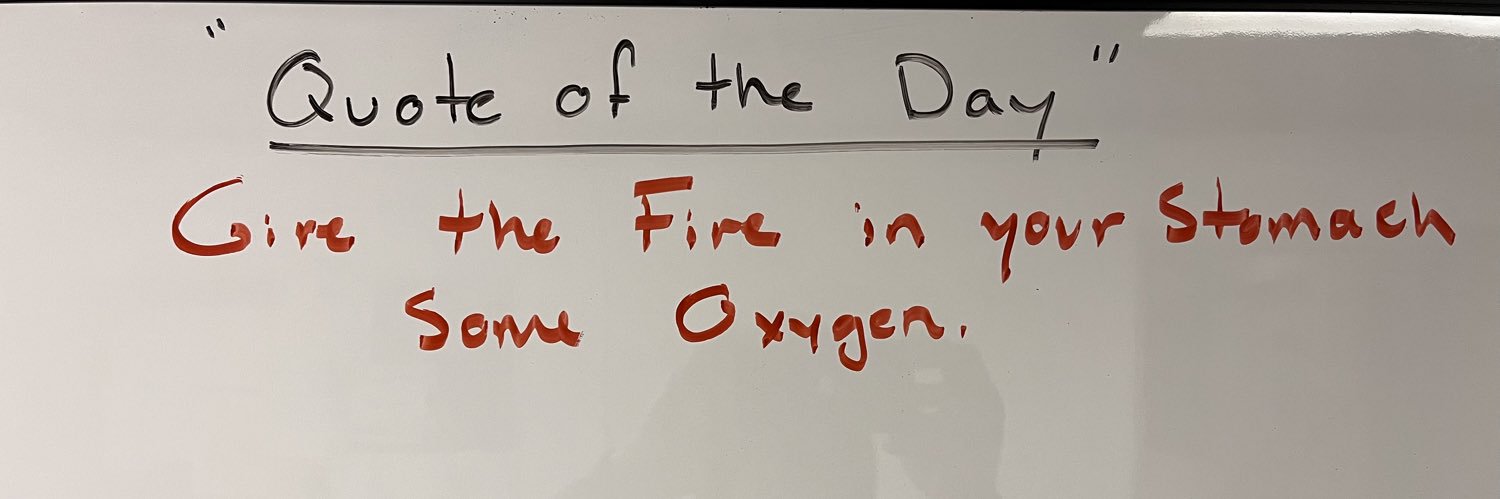 "Quote of the Day"
Give the Fire in your Stomach
Some Oxygen.